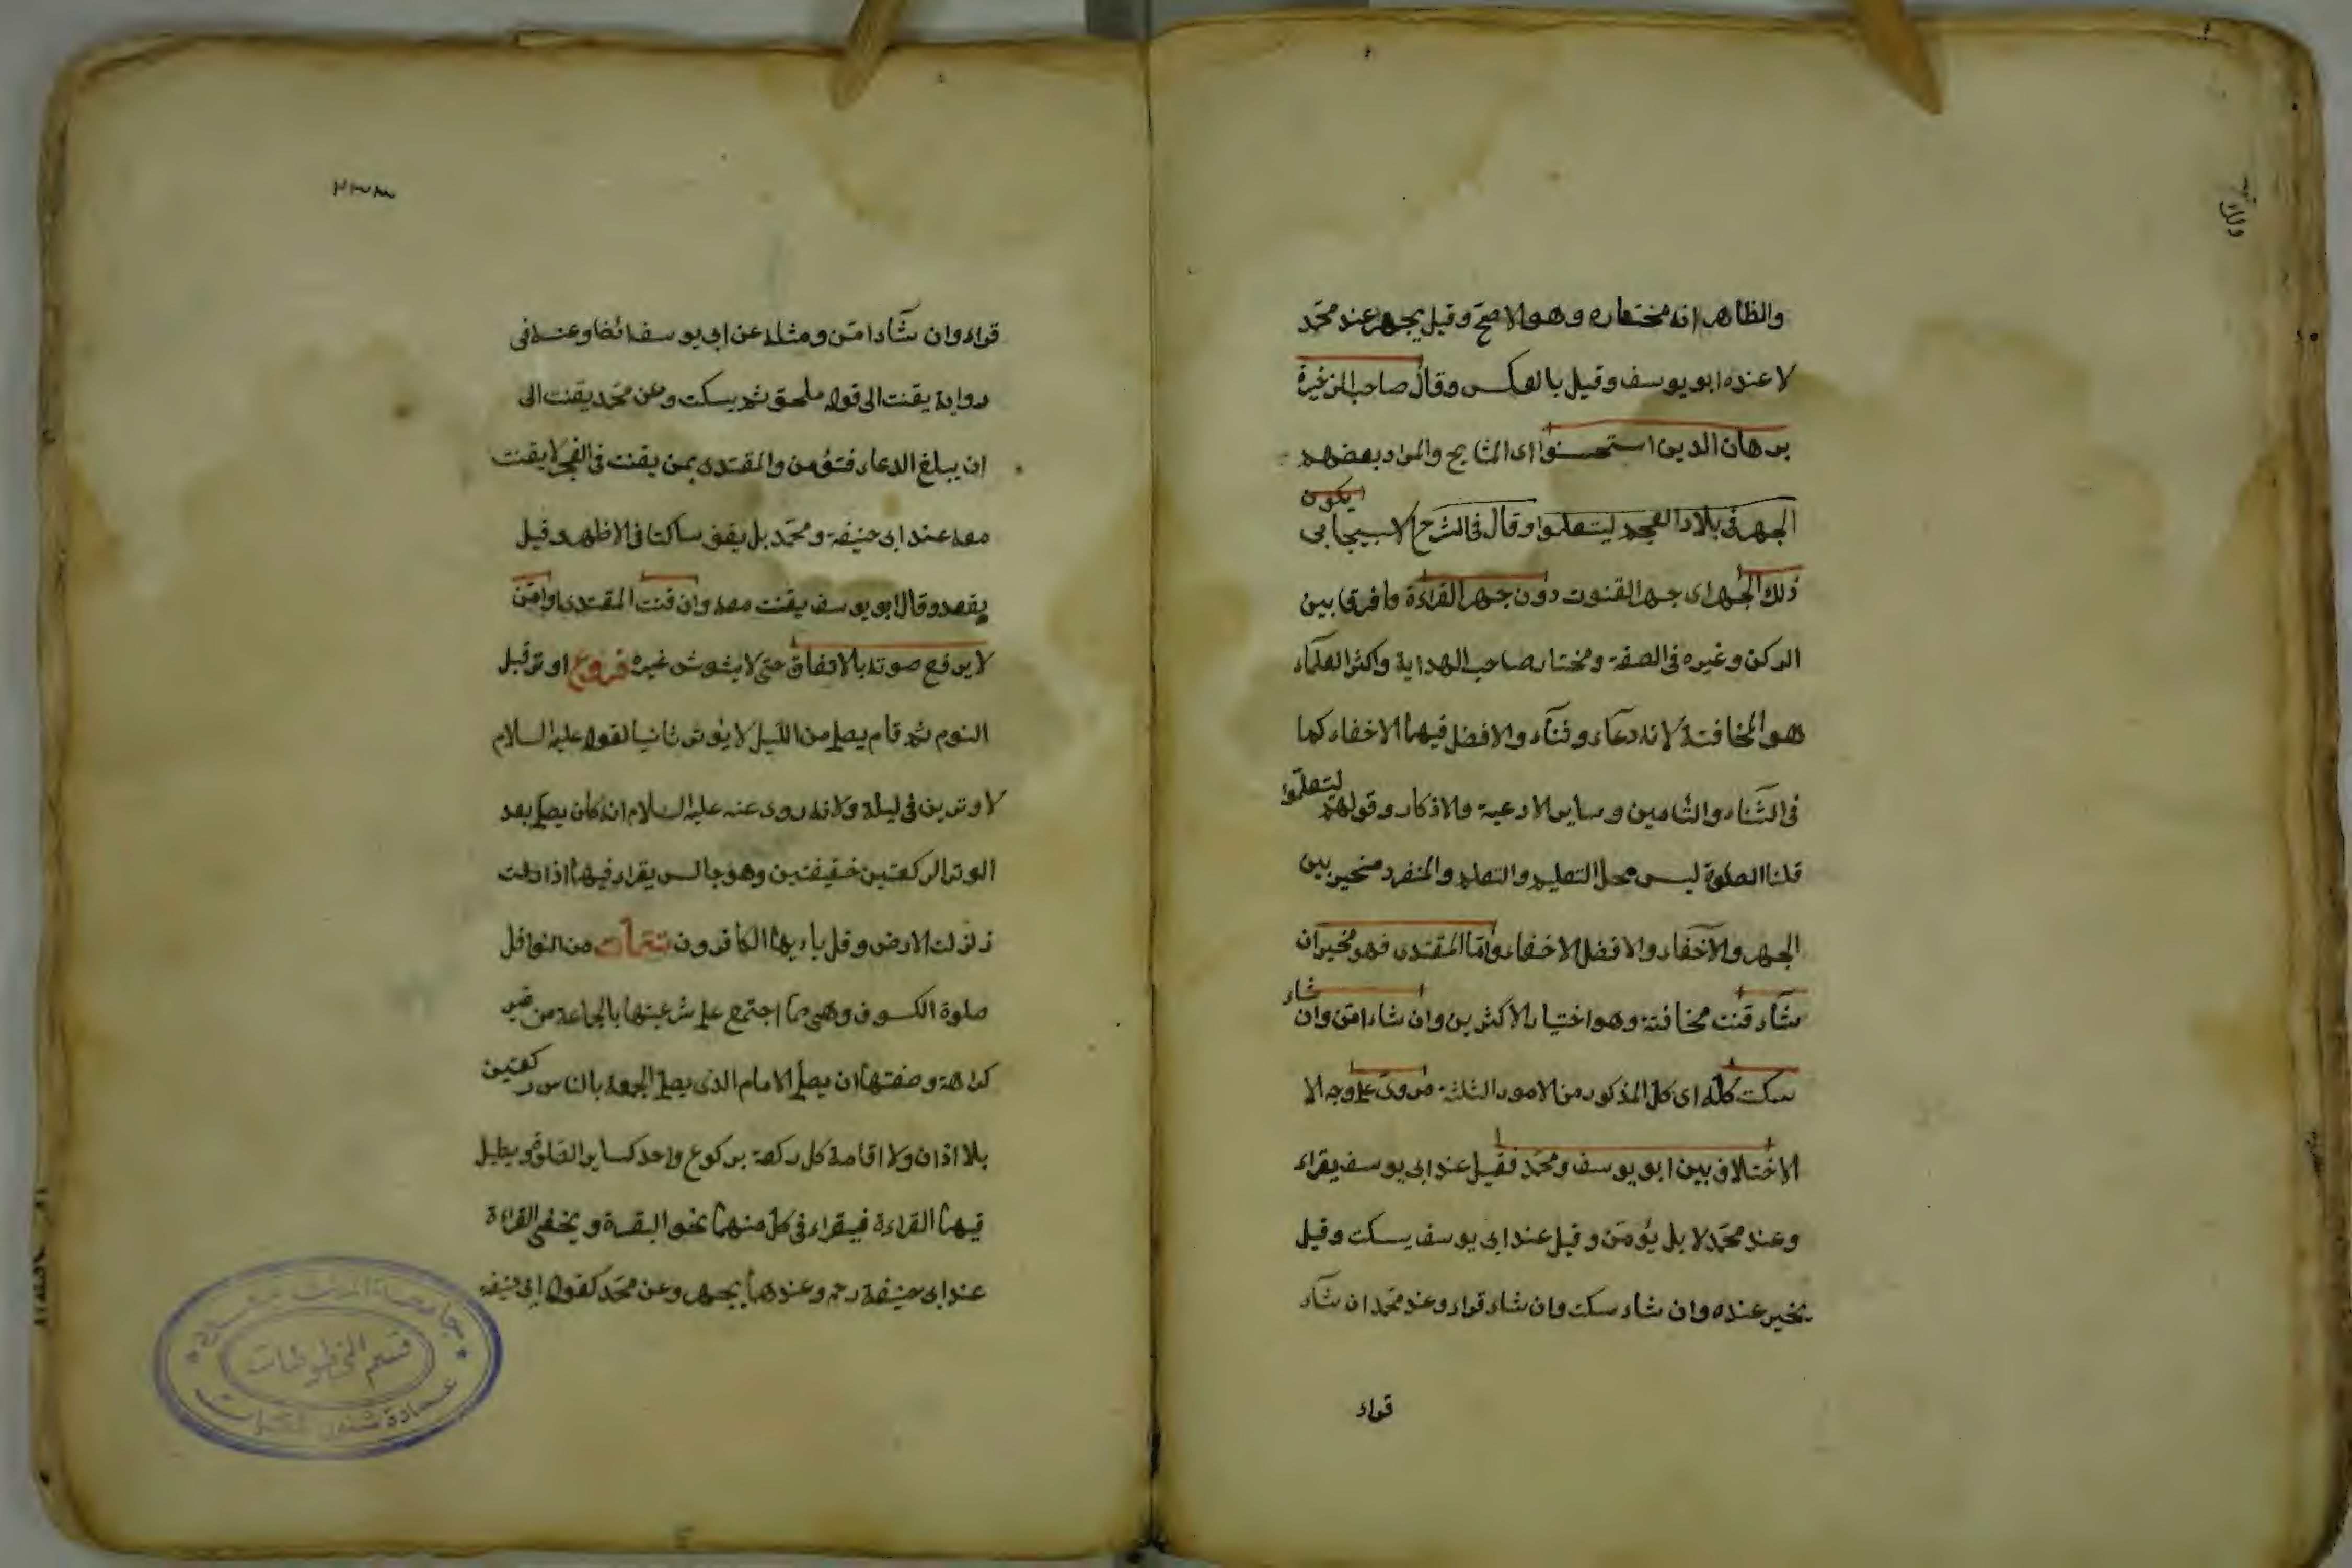 والظاهر انه مختاره وهو الاصح وقيل يجهر عند محمد
لا عنده ابو يوسف وقيل بالعكس وقال صاحب الذخيرة
برهان الدين استحسنوا اى المشايخ والمراد بعضهم
الجهر فى بلاد العجم ليتعلموا وقال فى الشرح الاسبيجابى يكون
ذلك الجهر اى جهر القنوت دون جهر القراءة وافرق بين
الركن وغيره فى الصفة ومختار صاحب الهداية واكثر العلماء
هو المخافتة لانه دعاء وثناء والافضل فيهما الاخفاء كما
فى الثناء والتامين وساير الادعية والاذكار وقولهم ليتعلموا
قلنا الصلوة ليس محل التعليم والتعلم والمنفرد مخير بين
الجهر والاخفاء والافضل الاخفاء واما المقتدى فهو مخير ان
شاء قنت مخافتة وهو اختيار الاكثرين وان شاء امن وان شاء
سكت كله اى كل المذكور من الامور الثلثة مروى على وجه الا
الاختلاف بين ابو يوسف ومحمد فقيل عند ابى يوسف يقراء
وعند محمد لا بل يؤمن وقيل عند ابى يوسف يسكت وقيل
يخير عنده وان شاء سكت وان شاء قراء وعند محمد ان شاء
قراء
٢٣٣
قراء وان شاء امن ومثله عن ابى يوسف ائضا وعنه فى
رواية يقنت الى قوله ملحق ثم يسكت وعن محمد يقنت الى
ان يبلغ الدعاء فتؤمن والمقتدى بمن يقنت فى الفجر لا يقنت
معه عند ابى حنيفة ومحمد بل يقف ساكتا فى الاظهر وقيل
يقعد وقال ابو يوسف يقنت معه وان قنت المقتدى او امن
لا يرفع صوته بالاتفاق حتى لا يشوش غيره فروع اوتر قبل
النوم ثم قام يصلى من الليل لا يوتر ثانيا لقوله عليه السلام
لا وترين فى ليلة ولانه روى عنه عليه السلام انه كان يصلى بعد
الوتر الركعتين خفيفتين وهو جالس يقراء فيهما اذا زلت
زلزلت الارض وقل يا ايها الكافرون تتمات من النوافل
صلوة الكسوف وهى مما اجتمع على شرعيتها بالجماعة من غير
كراهة وصفتها ان يصلى الامام الذى يصلى الجمعة بالناس ركعتين
بلا اذان ولا اقامة كل ركعة بركوع واحد كساير الصلوة ويطيل
فيهما القراءة فيقراء فى كل منهما نحو البقرة ويخفى القراءة
عند ابى حنيفة رحم وعندهما يجهر وعن محمد كقول ابى حنيفة
قسم المخطوطات